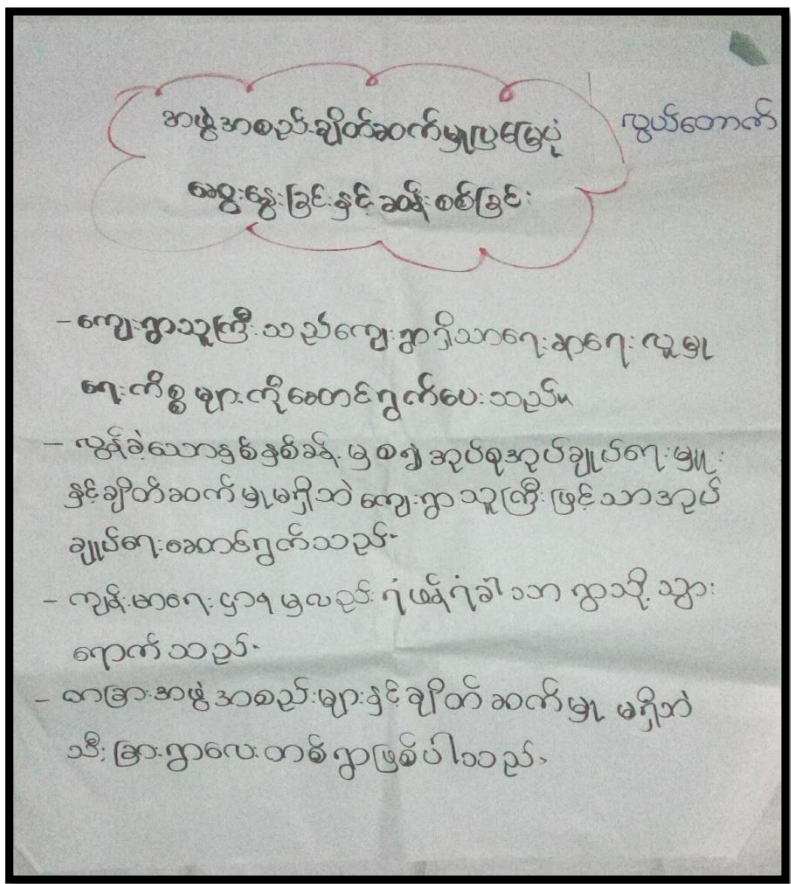 အဖွဲ့အစည်းချိတ်ဆက်မှုပြမြေပုံ
လွယ်တောက်
ဆွေးနွေးခြင်းနှင့်ဆန်းစစ်ခြင်း
-ကျေးရွာသူကြီးသည်ကျေးရွာရှိသာရေးနာရေးလူမှု
ရေးကိစ္စများကိုဆောင်ရွက်ပေးသည်။
- လွန်ခဲ့သောနှစ်နှစ်ခန့်မှစ၍အုပ်စုအုပ်ချုပ်ရေးမှူး
နှင့်ချိတ်ဆက်မှုမရှိဘဲကျေးရွာသူကြီးဖြင့်သာအုပ်
ချုပ်ရေးဆောင်ရွက်သည်။
- ကျန်းမာရေးဌာနမှလည်းရံဖန်ရံခါသာရွာသို့သွား
ရောက်သည်။
- တခြားအဖွဲ့အစည်းများနှင့်ချိတ်ဆက်မှုမရှိဘဲ
သီးခြားရွာလေးတစ်ရွာဖြစ်ပါသည်။